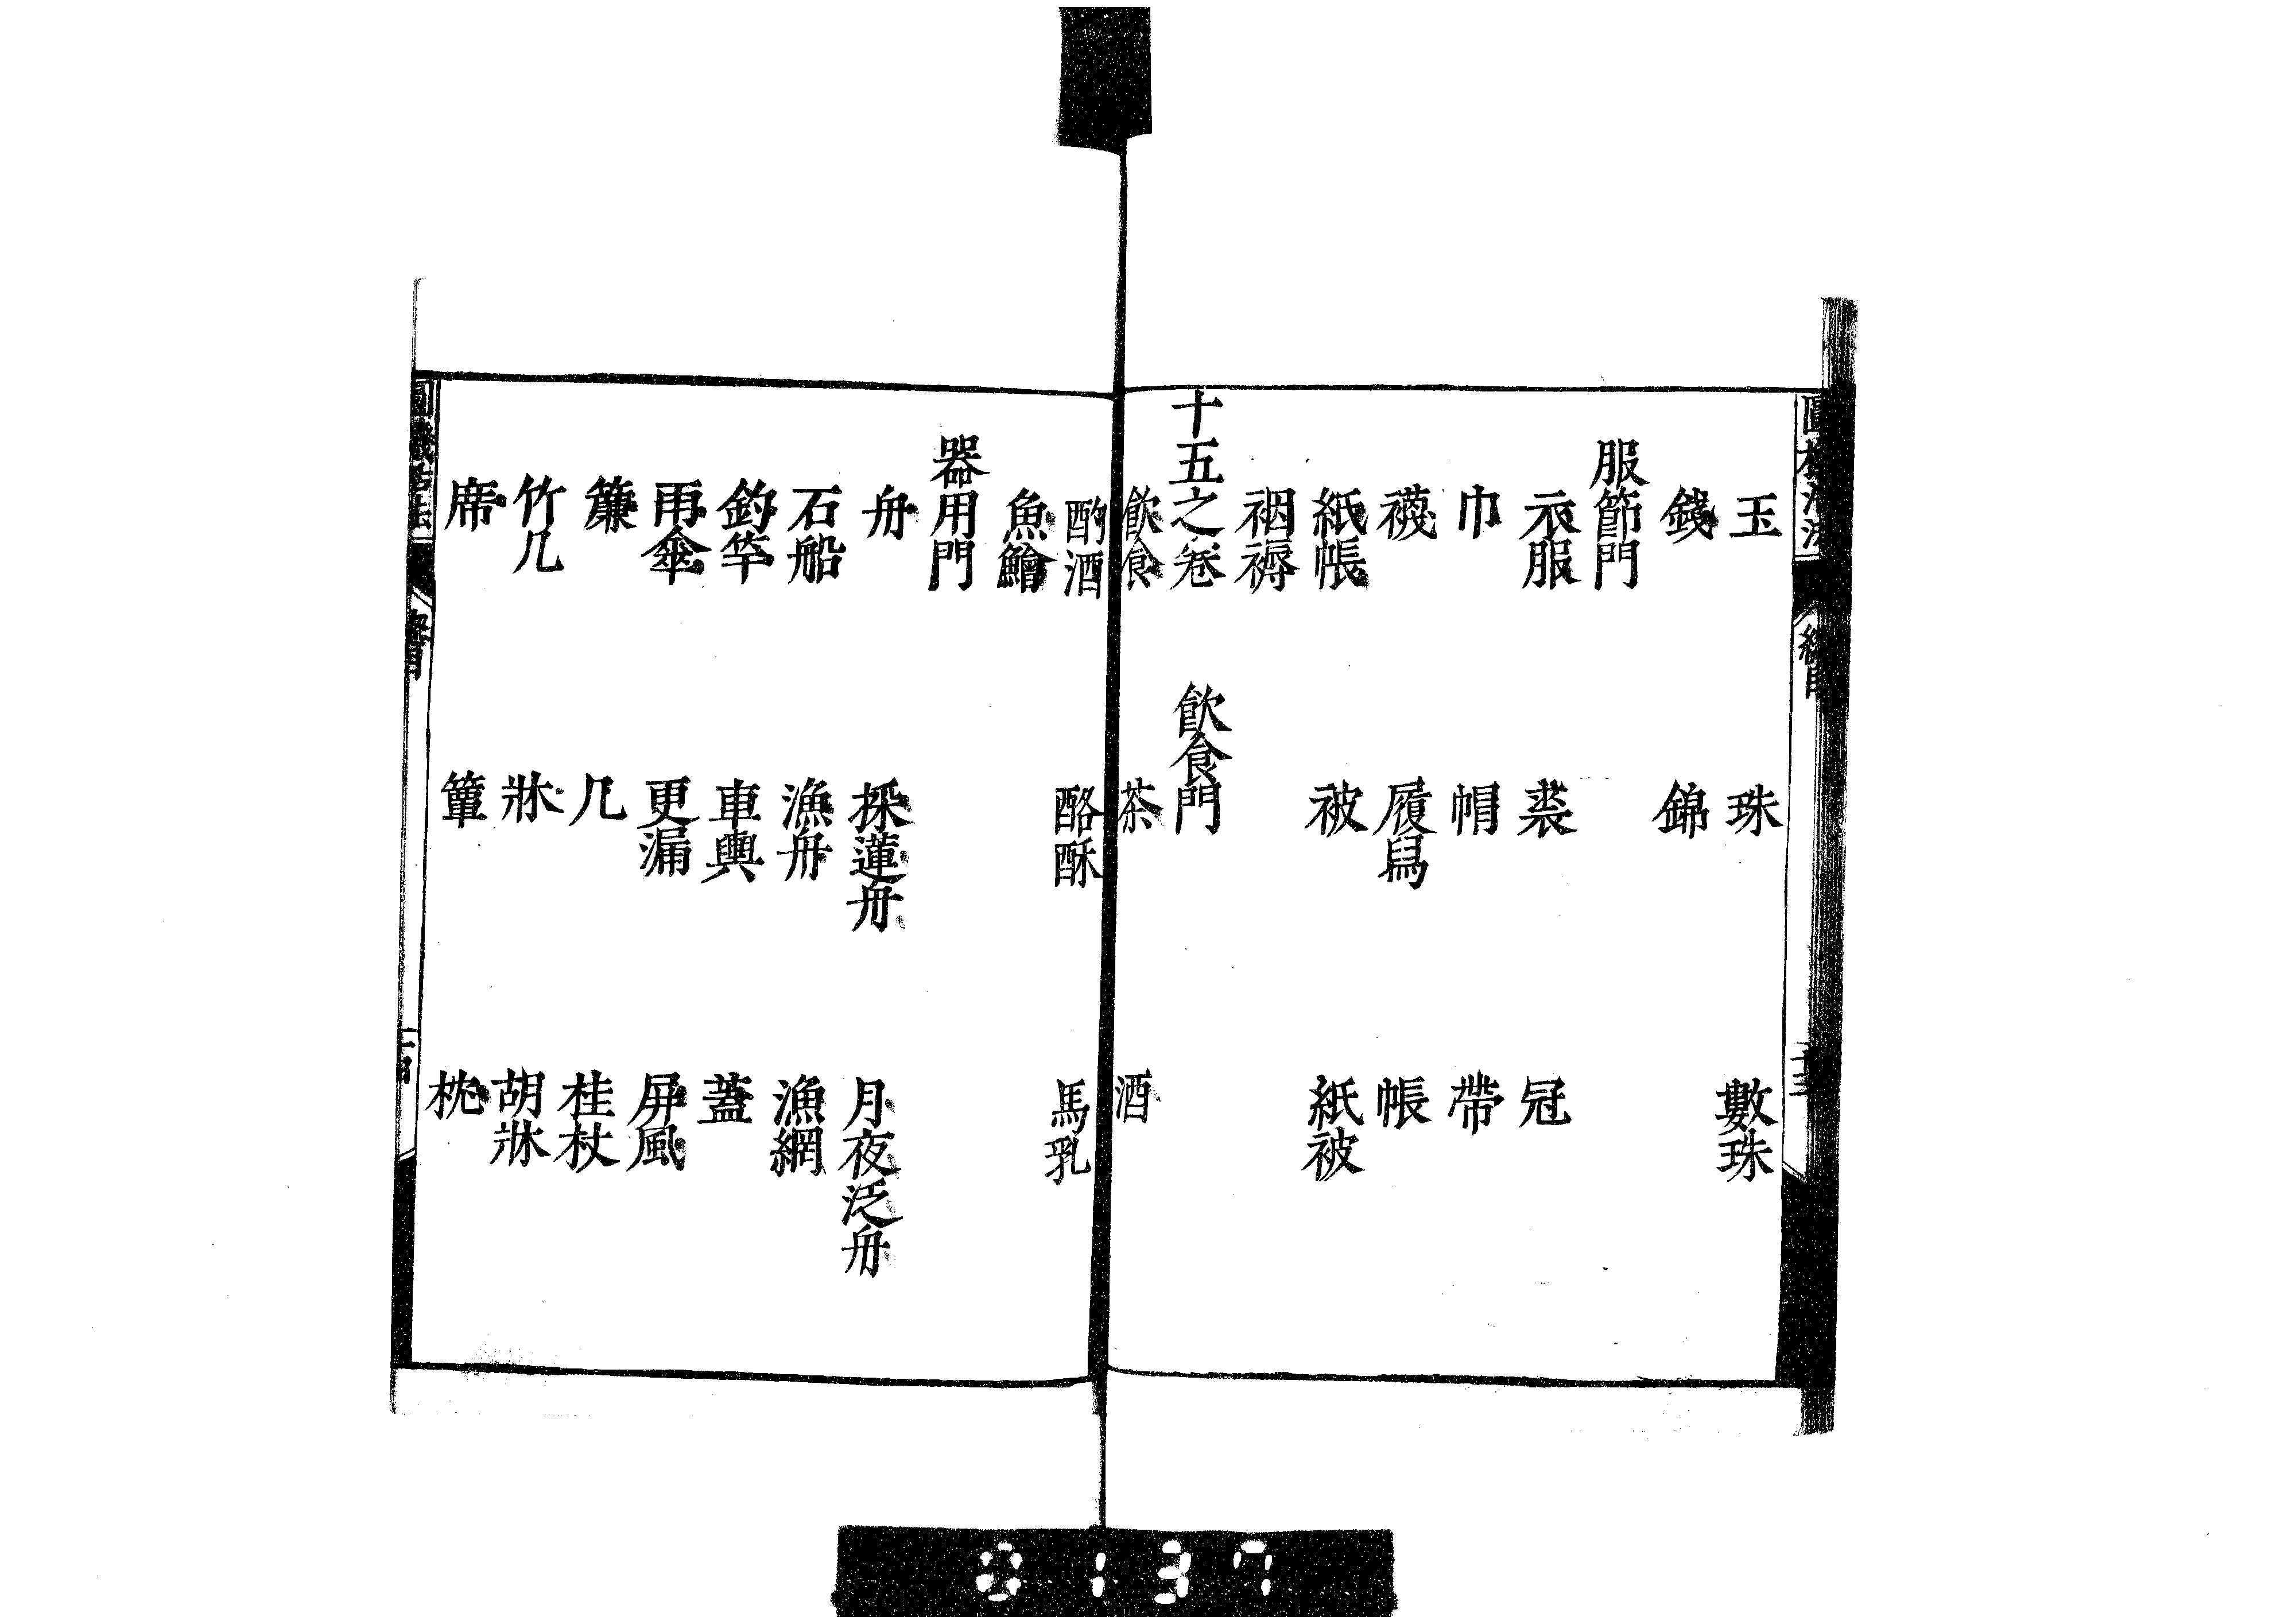 玉 珠 數珠
錢 錦
服節門
衣服 裘 冠
巾 帽 帶
襪 履舄 帳
紙帳 被 紙被
裀褥
十五之卷 飲食門
飲食 茶 酒
酌酒 酪酥 馬乳
魚鱠
器用門
舟 採蓮舟 月夜泛舟
石船 漁舟 漁網
釣竿 車輿 蓋
雨傘 更漏 屏風
簾 几 桂杖
竹几 牀 胡牀
席 簟 枕
0137